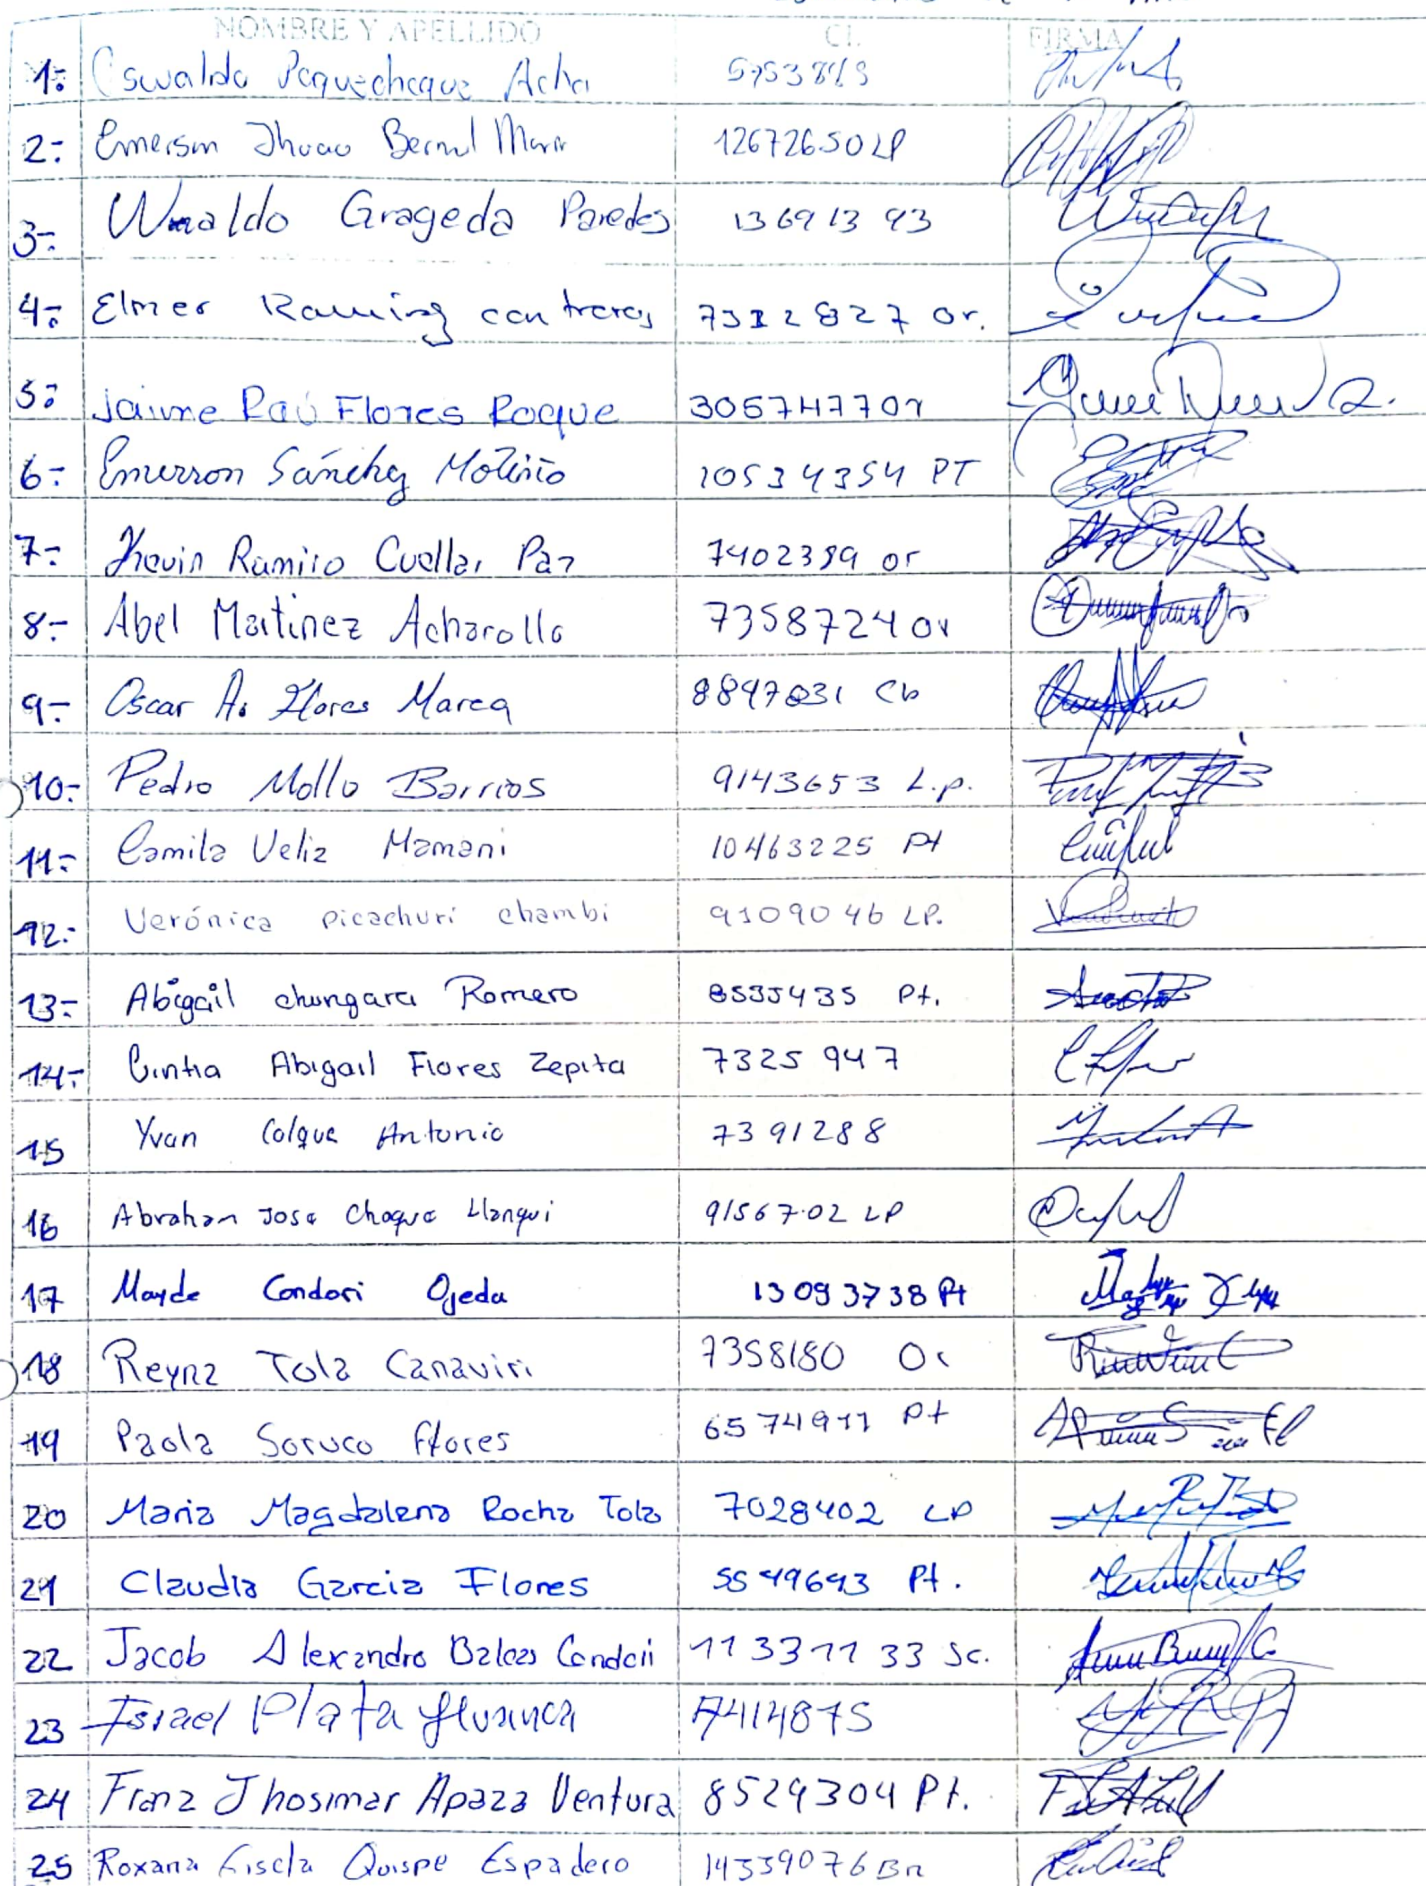 NOMBRE Y APELLIDO CI. FIRMA
1.- Oswaldo Paquechoque Acha 5753849
2.- Emerson Jhoao Bernal 12672650 LP
3.- Grageda Paredes 13691393
4.- Elmer Ramirez contreras 7312827 Or.
5.- Jaime Raú Flores Roque 3057477 Or
6.- Emerson Sánchez 10534354 PT
7.- Khevin Ramiro Cuellar Paz 7402389 or
8.- Abel Martinez Acharollo 7358724 or
9.- Oscar A. Flores Marca 8897831 Cb
10.- Pedro Mollo Barrios 9143653 L.p.
11.- Camila Veliz Mamani 10463225 Pt
12.- Verónica picachuri chambi 9109046 LP.
13.- Abigail chungara Romero 8535435 Pt.
14.- Cintia Abigail Flores Zepita 7325947
15 Yvan Colque Antonio 7391288
16 Abraham Jose Choque Llanqui 9156702 LP
17 Mayde Condori Ojeda 13093738 Pt
18 Reyna Tola Canaviri 7358180 Or
19 Paola Soruco flores 6574911 Pt
20 Maria Magdalena Rocha Tola 7028402 LP
21 Claudia Garcia Flores 5549643 Pt.
22 Jacob Alexandro Balcas Condori 11331133 Sc.
23 Israel Plata Huanca 7414875
24 Franz Jhosimar Apaza Ventura 8529304 Pt.
25 Roxana Gisela Quispe Espadero 14339076 Bn